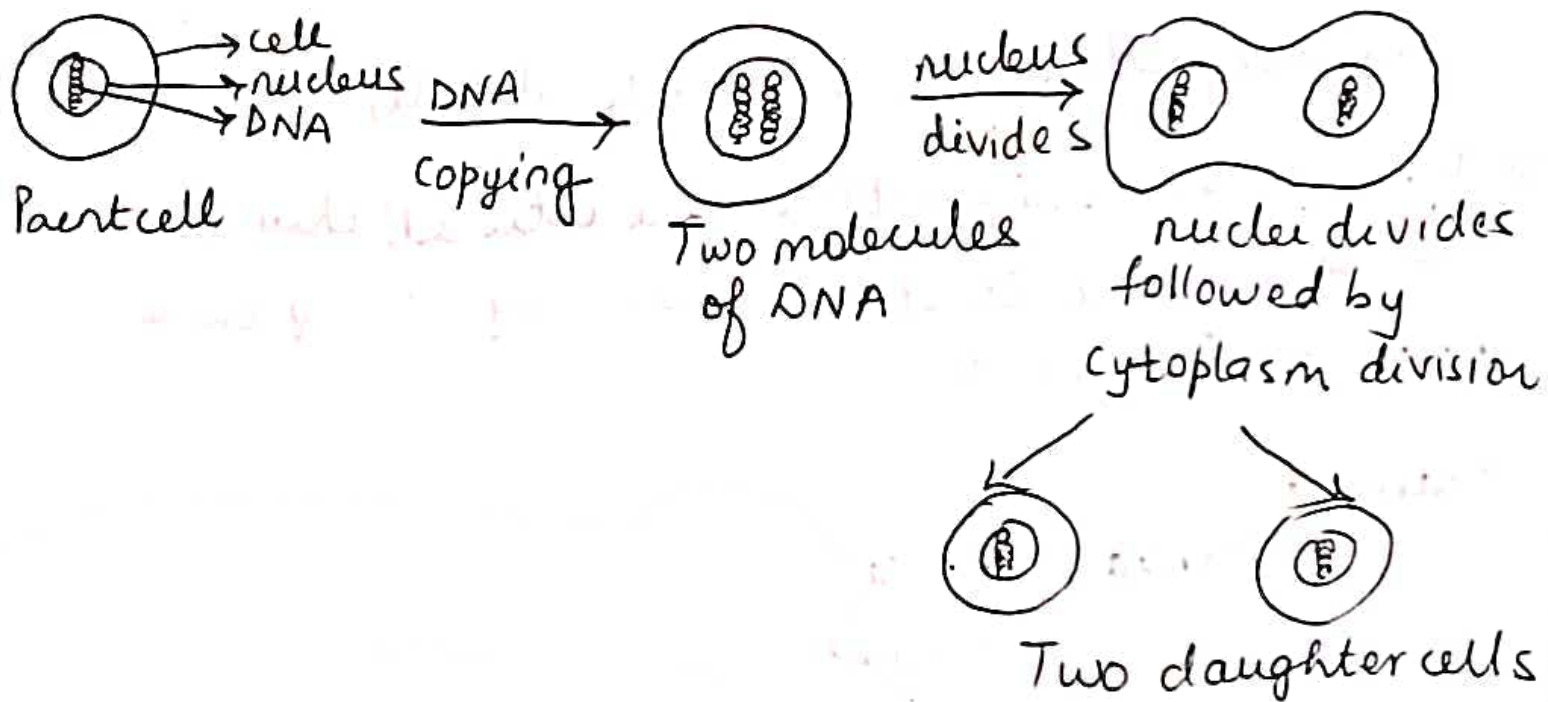 cell
nucleus
DNA
Paentcell
DNA
copying
Two molecules
of DNA
nucleus
divides
nuclei divides
followed by
cytoplasm division
Two daughter cells